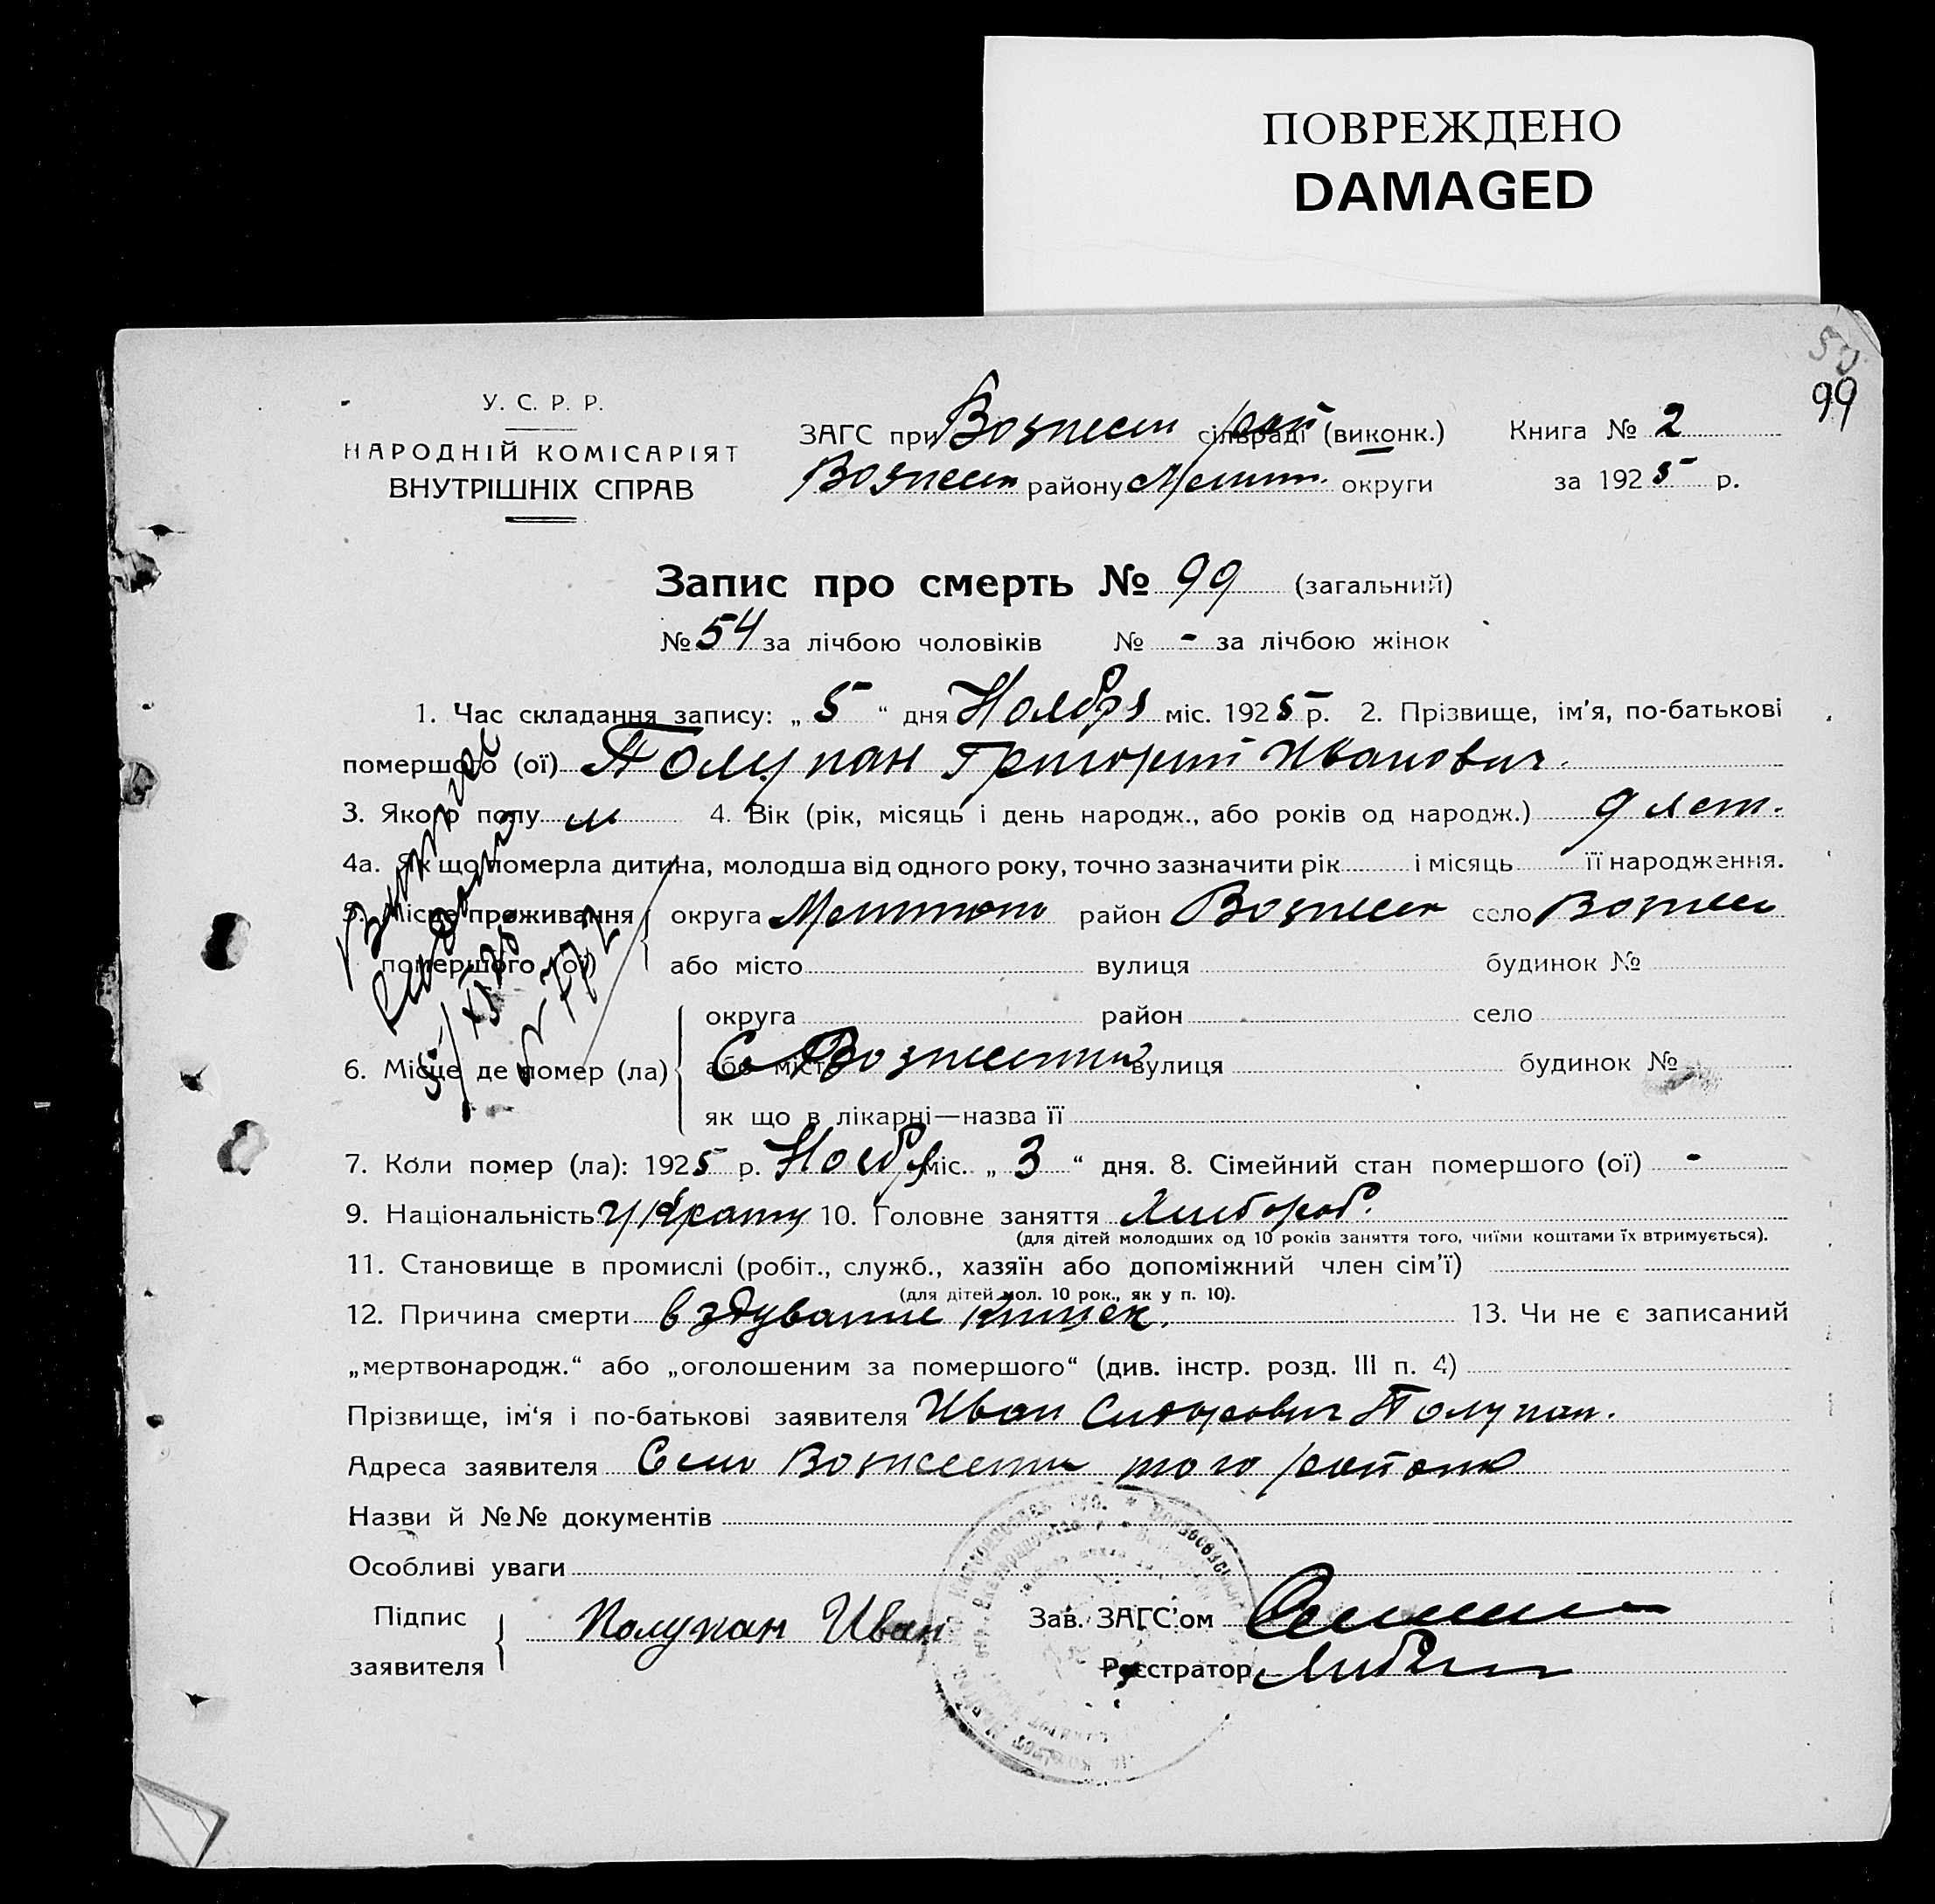 ПОВРЕЖДЕНО
DAMAGED
99
У. С. Р. Р.
НАРОДНІЙ КОМІСАРІЯТ
ВНУТРІШНІХ СПРАВ
ЗАГС при Вознесен рай сільраді (виконк.)
Вознесен району Мелит. округи
Книга № 2
за 1925 р.
Запис про смерть № 99 (загальний)
№ 54 за лічбою чоловіків № - за лічбою жінок
1. Час складання запису: „ 5 “ дня Ноября міс. 1925 р. 2. Прізвище, ім'я, по-батькові
помершого (ої) Полупан Григорий Иванович.
3. Якого полу м 4. Вік (рік, місяць і день народж., або років од народж.) 9 лет.
4а. Як що померла дитина, молодша від одного року, точно зазначити рік і місяць її народження.
5. Місце проживання округа район Вознесен село Вознесе
помершого (ої) або місто вулиця будинок №
округа район село
6. Місце де помер (ла) або місто С Вознесенка вулиця будинок №
як що в лікарні—назва її
7. Коли помер (ла): 1925 р. Ноября міс. „ 3 “ дня. 8. Сімейний стан помершого (ої) -
9. Національність 10. Головне заняття Хлебороб.
(для дітей молодших од 10 років заняття того, чиїми коштами їх втримується).
11. Становище в промислі (робіт., служб., хазяїн або допоміжний член сім'ї)
(для дітей мол. 10 рок., як у п. 10).
12. Причина смерти вздувание кишек. 13. Чи не є записаний
„мертвонародж.“ або „оголошеним за помершого“ (див. інстр. розд. III п. 4)
Прізвище, ім'я і по-батькові заявителя Иван Сидорович Полупан.
Адреса заявителя Село Вознесенка того района
Назви й №№ документів
Особливі уваги
Підпис
заявителя Полупан Иван
Зав. ЗАГС'ом
Реєстратор